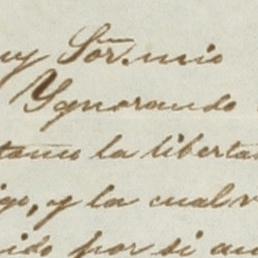 uy Sor. mio
Ygnorando
tomo la liberta
igo, y la cual v
ido por si au